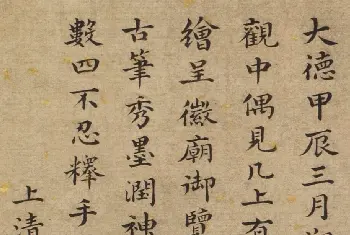 大德甲辰三月
觀中偶見几上有
繪呈徽廟御覽
古筆秀墨潤神
數四不忍釋手
上清